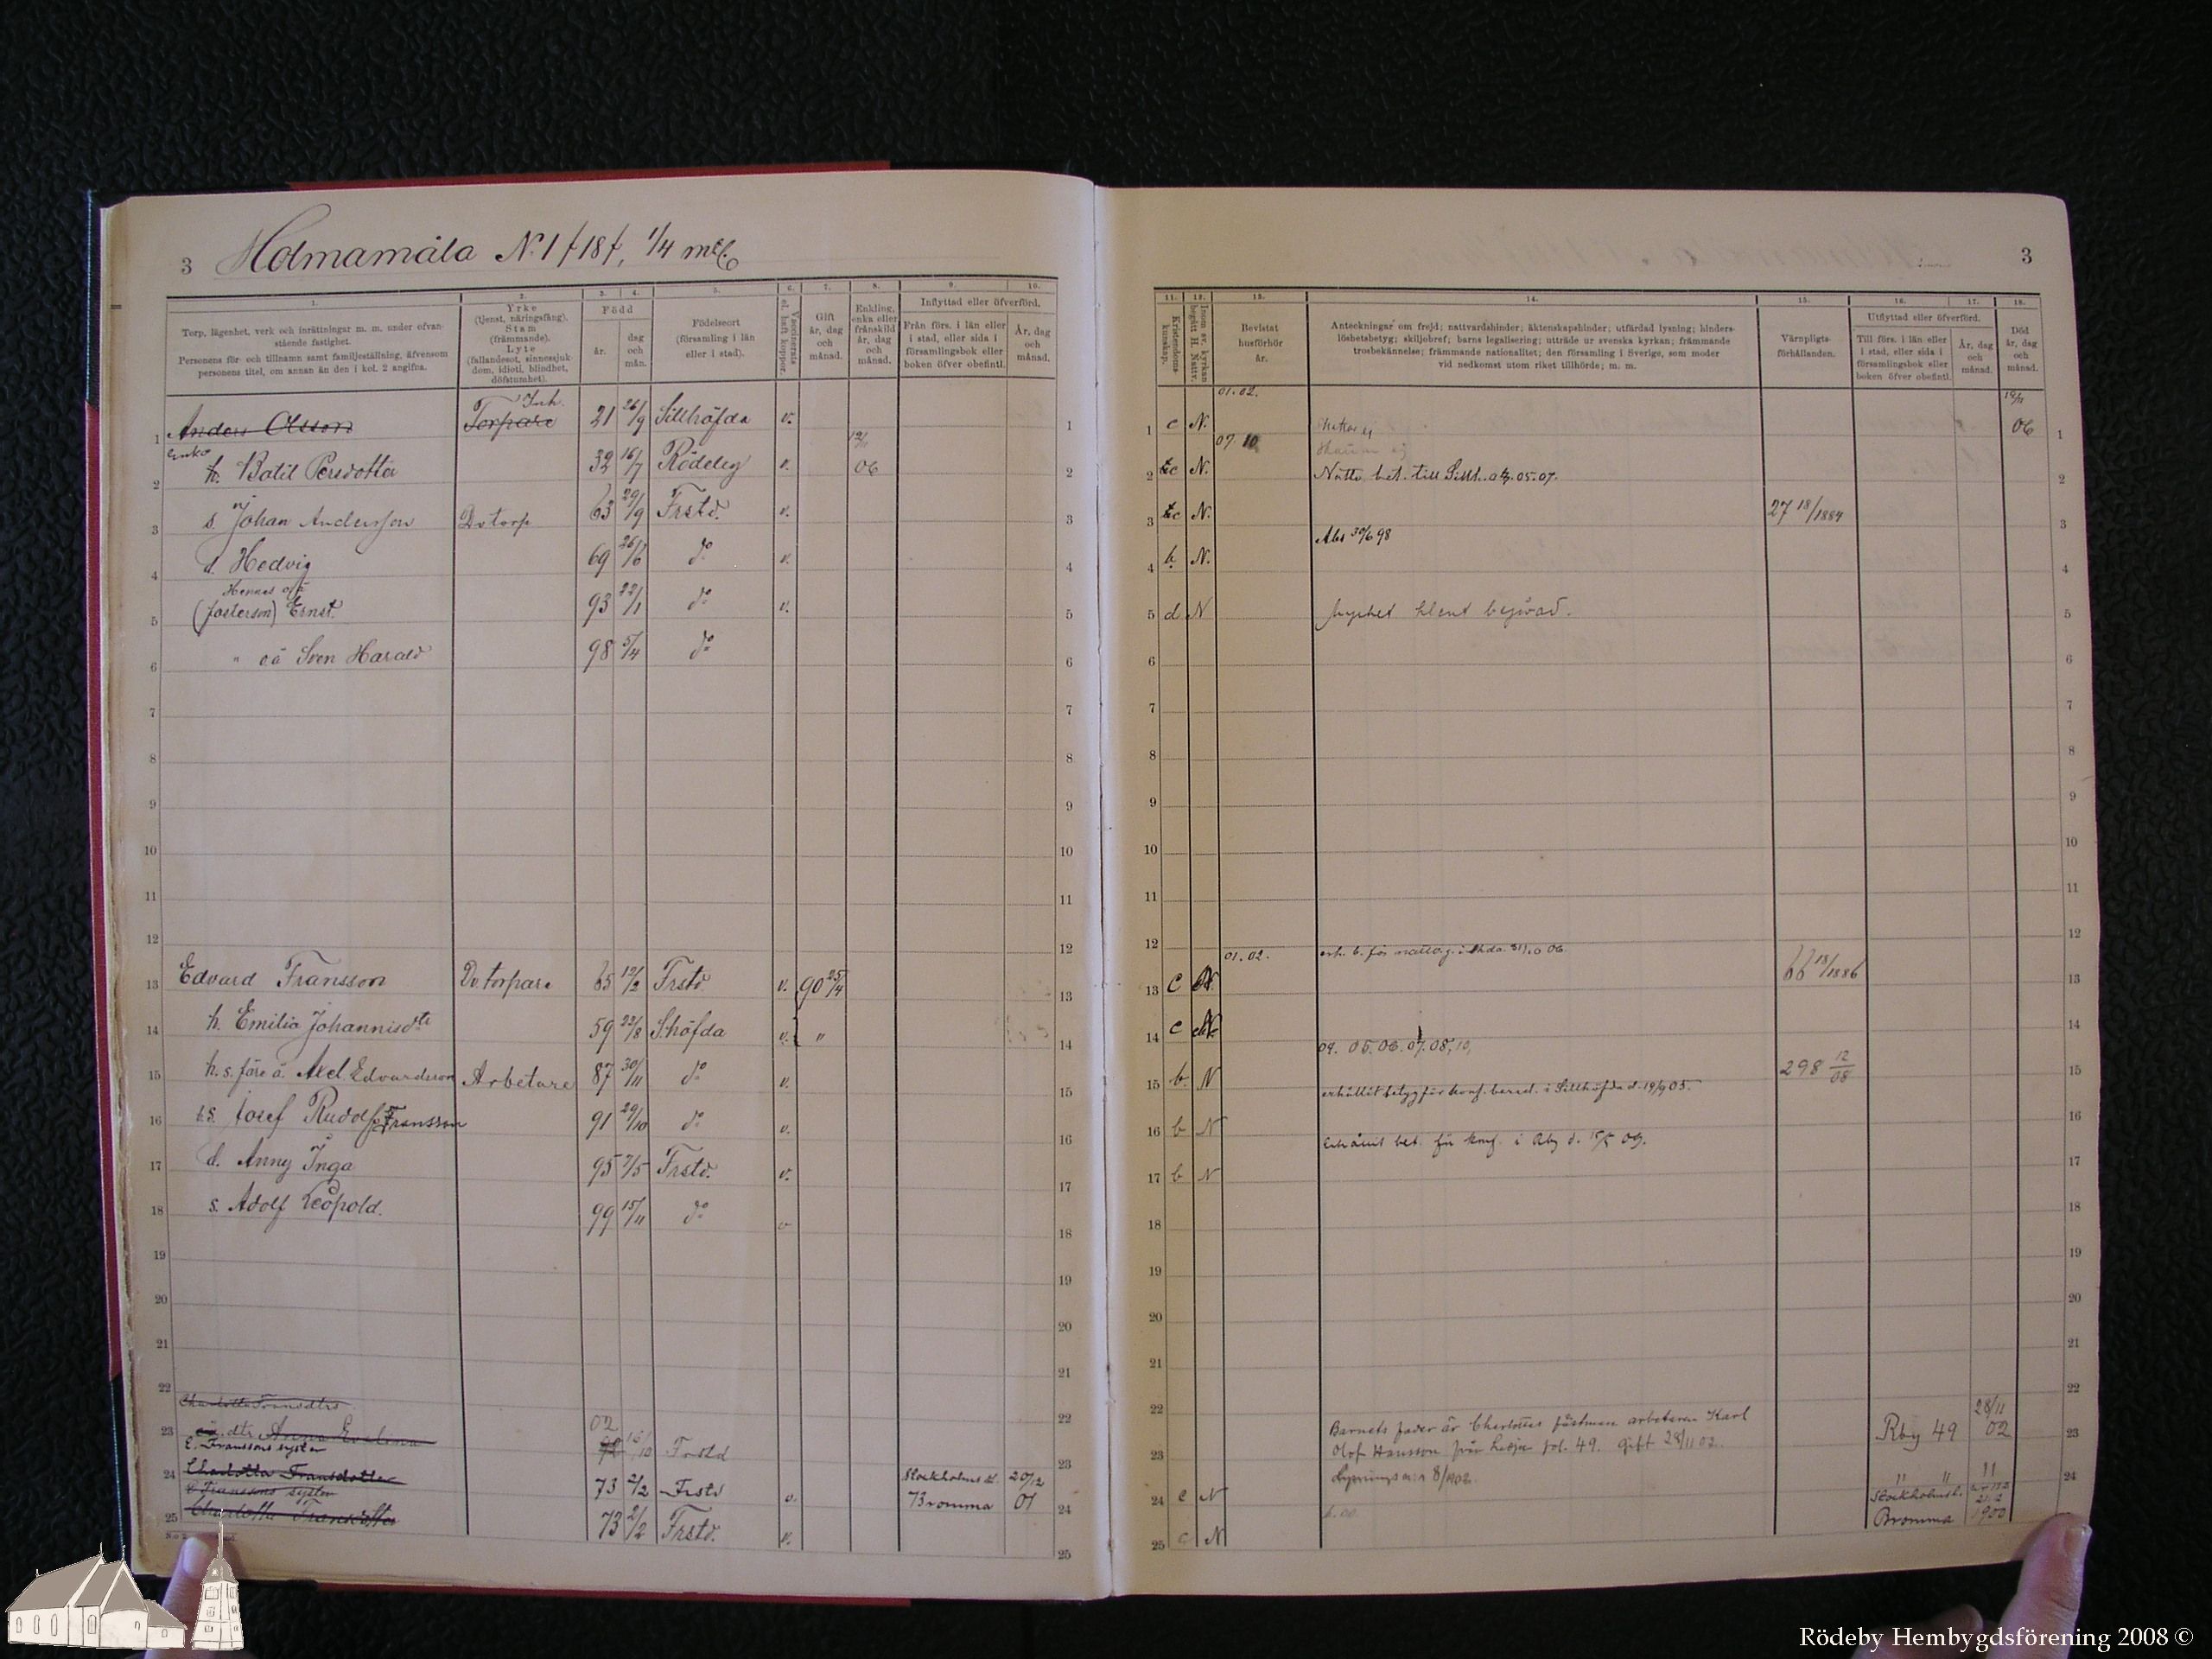 3 Holmamåla N:1 /18/, 1/4 mtl.
3
1. 2. 3. 4. 5. 6. 7. 8. 9. 10.
Torp, lägenhet, verk och inrättningar m. m. under ofvanstående fastighet.
Personens för- och tillnamn samt familjeställning, äfvensom personens titel, om annan än den i kol. 2 angifna.
Yrke (tjenst, näringsfång). Stam (främmande). Lyte (fallandesot, sinnessjukdom, idioti, blindhet, döfstumhet).
Född
år.
dag och mån.
Födelseort (församling i län eller i stad).
Vaccinerats el. haft koppor.
Gift år, dag och månad.
Enkling, enka eller frånskild år, dag och månad.
Inflyttad eller öfverförd.
Från förs. i län eller i stad, eller sida i församlingsbok eller boken öfver obefintl.
År, dag och månad.
11. 12. 13. 14. 15. 16. 17. 18.
Kristendomskunskap.
Inom sv. kyrkan begått H. Nattv.
Bevistat husförhör år.
Anteckningar om frejd; nattvardshinder; äktenskapshinder; utfärdad lysning; hinderslöshetsbetyg; skiljobref; barns legalisering; utträde ur svenska kyrkan; främmande trosbekännelse; främmande nationalitet; den församling i Sverige, som moder vid nedkomst utom riket tillhörde; m. m.
Värnpligtsförhållanden.
Utflyttad eller öfverförd.
Till förs. i län eller i stad, eller sida i församlingsbok eller boken öfver obefintl.
År, dag och månad.
Död år, dag och månad.
1 Anders Olsson Torpare Inh. 21 26/9 Sillhöfda v. 1
1 c N. 01.02. 06 1
Enka
2 h. Botil Persdotter 32 16/7 Rödeby v. 06 2
2 c N. 07 10 Nattv. bet. till Sillh. 05.07. 2
3 s. Johan Andersson Do torp 63 29/9 Frstd. v. 3
3 c N. 27 18/1884 3
4 d. Hedvig 69 26/6 do v. 4
4 b N. Abs 30/6 98 4
Hennes oä
5 (fosterson) Ernst. 93 22/1 do v. 5
5 d N Mycket klent begåvad. 5
6 " oä Sven Harald 98 5/4 do 6
6 6
7 7 7 7
8 8 8 8
9 9 9 9
10 10 10 10
11 11 11 11
12 12 12 12
13 Edvard Fransson Do. torpare 65 12/2 Frstd. v. 90 25/4 13
13 C N. 01.02. 66 18/1886 13
14 h. Emilia Johannisdtr 59 23/8 S.höfda v. " 14
14 c 14
15 h. s. före ä. Axel Edvardsson Arbetare 87 30/11 do v. 15
15 b. N 04. 05. 06. 07. 08, 10, 298 12/08 15
16 s. Josef Rudolf Fransson 91 29/10 do v. 16
16 b N erhållit betyg för konf. bered. i Sillhöfda d. 19/9 05. 16
17 d. Anny Inga 95 7/5 Frstd. v. 17
17 b N Erhållit bet. för konf. i Rby d. 09. 17
18 s. Adolf Leopold. 99 15/11 do v 18
18 18
19 19 19 19
20 20 20 20
21 21 21 21
22 22 22 22
Charlotta Fransdtrs
23 oä. dtr Anna Evelina 02 Frstd 23
23 Barnets fader är Charlottas fästman arbetaren Karl Olof Hansson från fol. 49. Gift 28/11 02. Rby 49 28/11 02 23
E. Franssons syster
24 Charlotta Fransdotter 73 2/2 Frstd v. Stockholms l. Bromma 20/12 01 24
24 c N Lysning 8/11 02. " " 11 24
E Franssons syster
25 Charlotta Fransdotter 73 2/2 Frstd. v. 25
25 c N Stockholms l. Bromma 1900
Rödeby Hembygdsförening 2008 ©